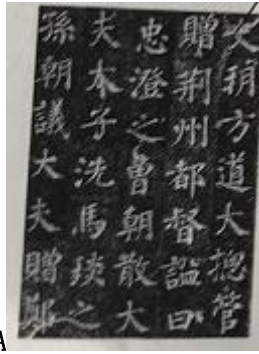 朔方道大揔管
贈荊州都督謚曰
忠澄之曾朝散大
夫太子洗馬琰之
孫朝議大夫贈鄭